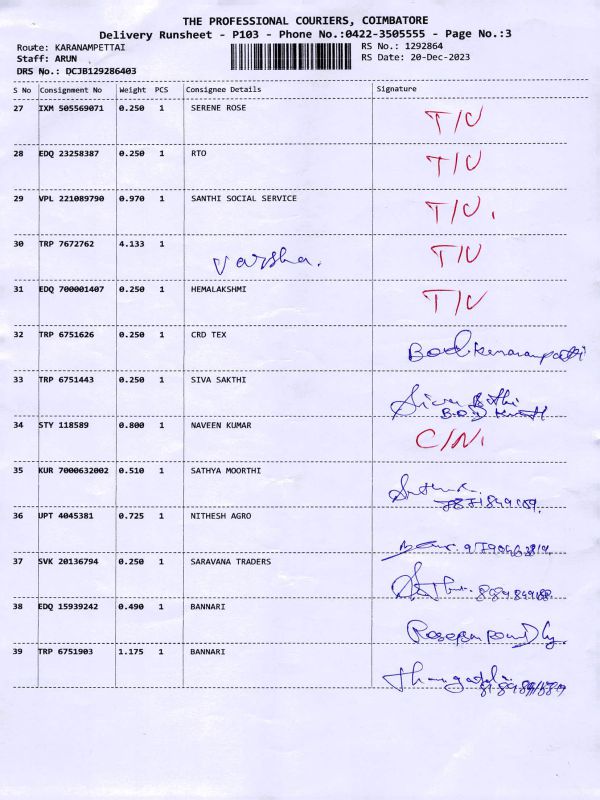 THE PROFESSIONAL COURIERS, COIMBATORE
Delivery Runsheet - P103 - Phone No.:0422-3505555 - Page No.:3
Route: KARANAMPETTAI
RS No.: 1292864
Staff: ARUN
RS Date: 20-Dec-2023
DRS No.: DCJB129286403
S No Consignment No Weight PCS Consignee Details Signature
27 IXM 505569071 0.250 1 SERENE ROSE T/U
28 EDQ 23258387 0.250 1 RTO T/U
29 VPL 221089790 0.970 1 SANTHI SOCIAL SERVICE T/U.
30 TRP 7672762 4.133 1 Varsha. T/U
31 EDQ 700001407 0.250 1 HEMALAKSHMI T/U
32 TRP 6751626 0.250 1 CRD TEX
33 TRP 6751443 0.250 1 SIVA SAKTHI
34 STY 118589 0.800 1 NAVEEN KUMAR C/N.
35 KUR 7000632002 0.510 1 SATHYA MOORTHI
36 UPT 4045381 0.725 1 NITHESH AGRO
37 SVK 20136794 0.250 1 SARAVANA TRADERS
38 EDQ 15939242 0.490 1 BANNARI
39 TRP 6751903 1.175 1 BANNARI